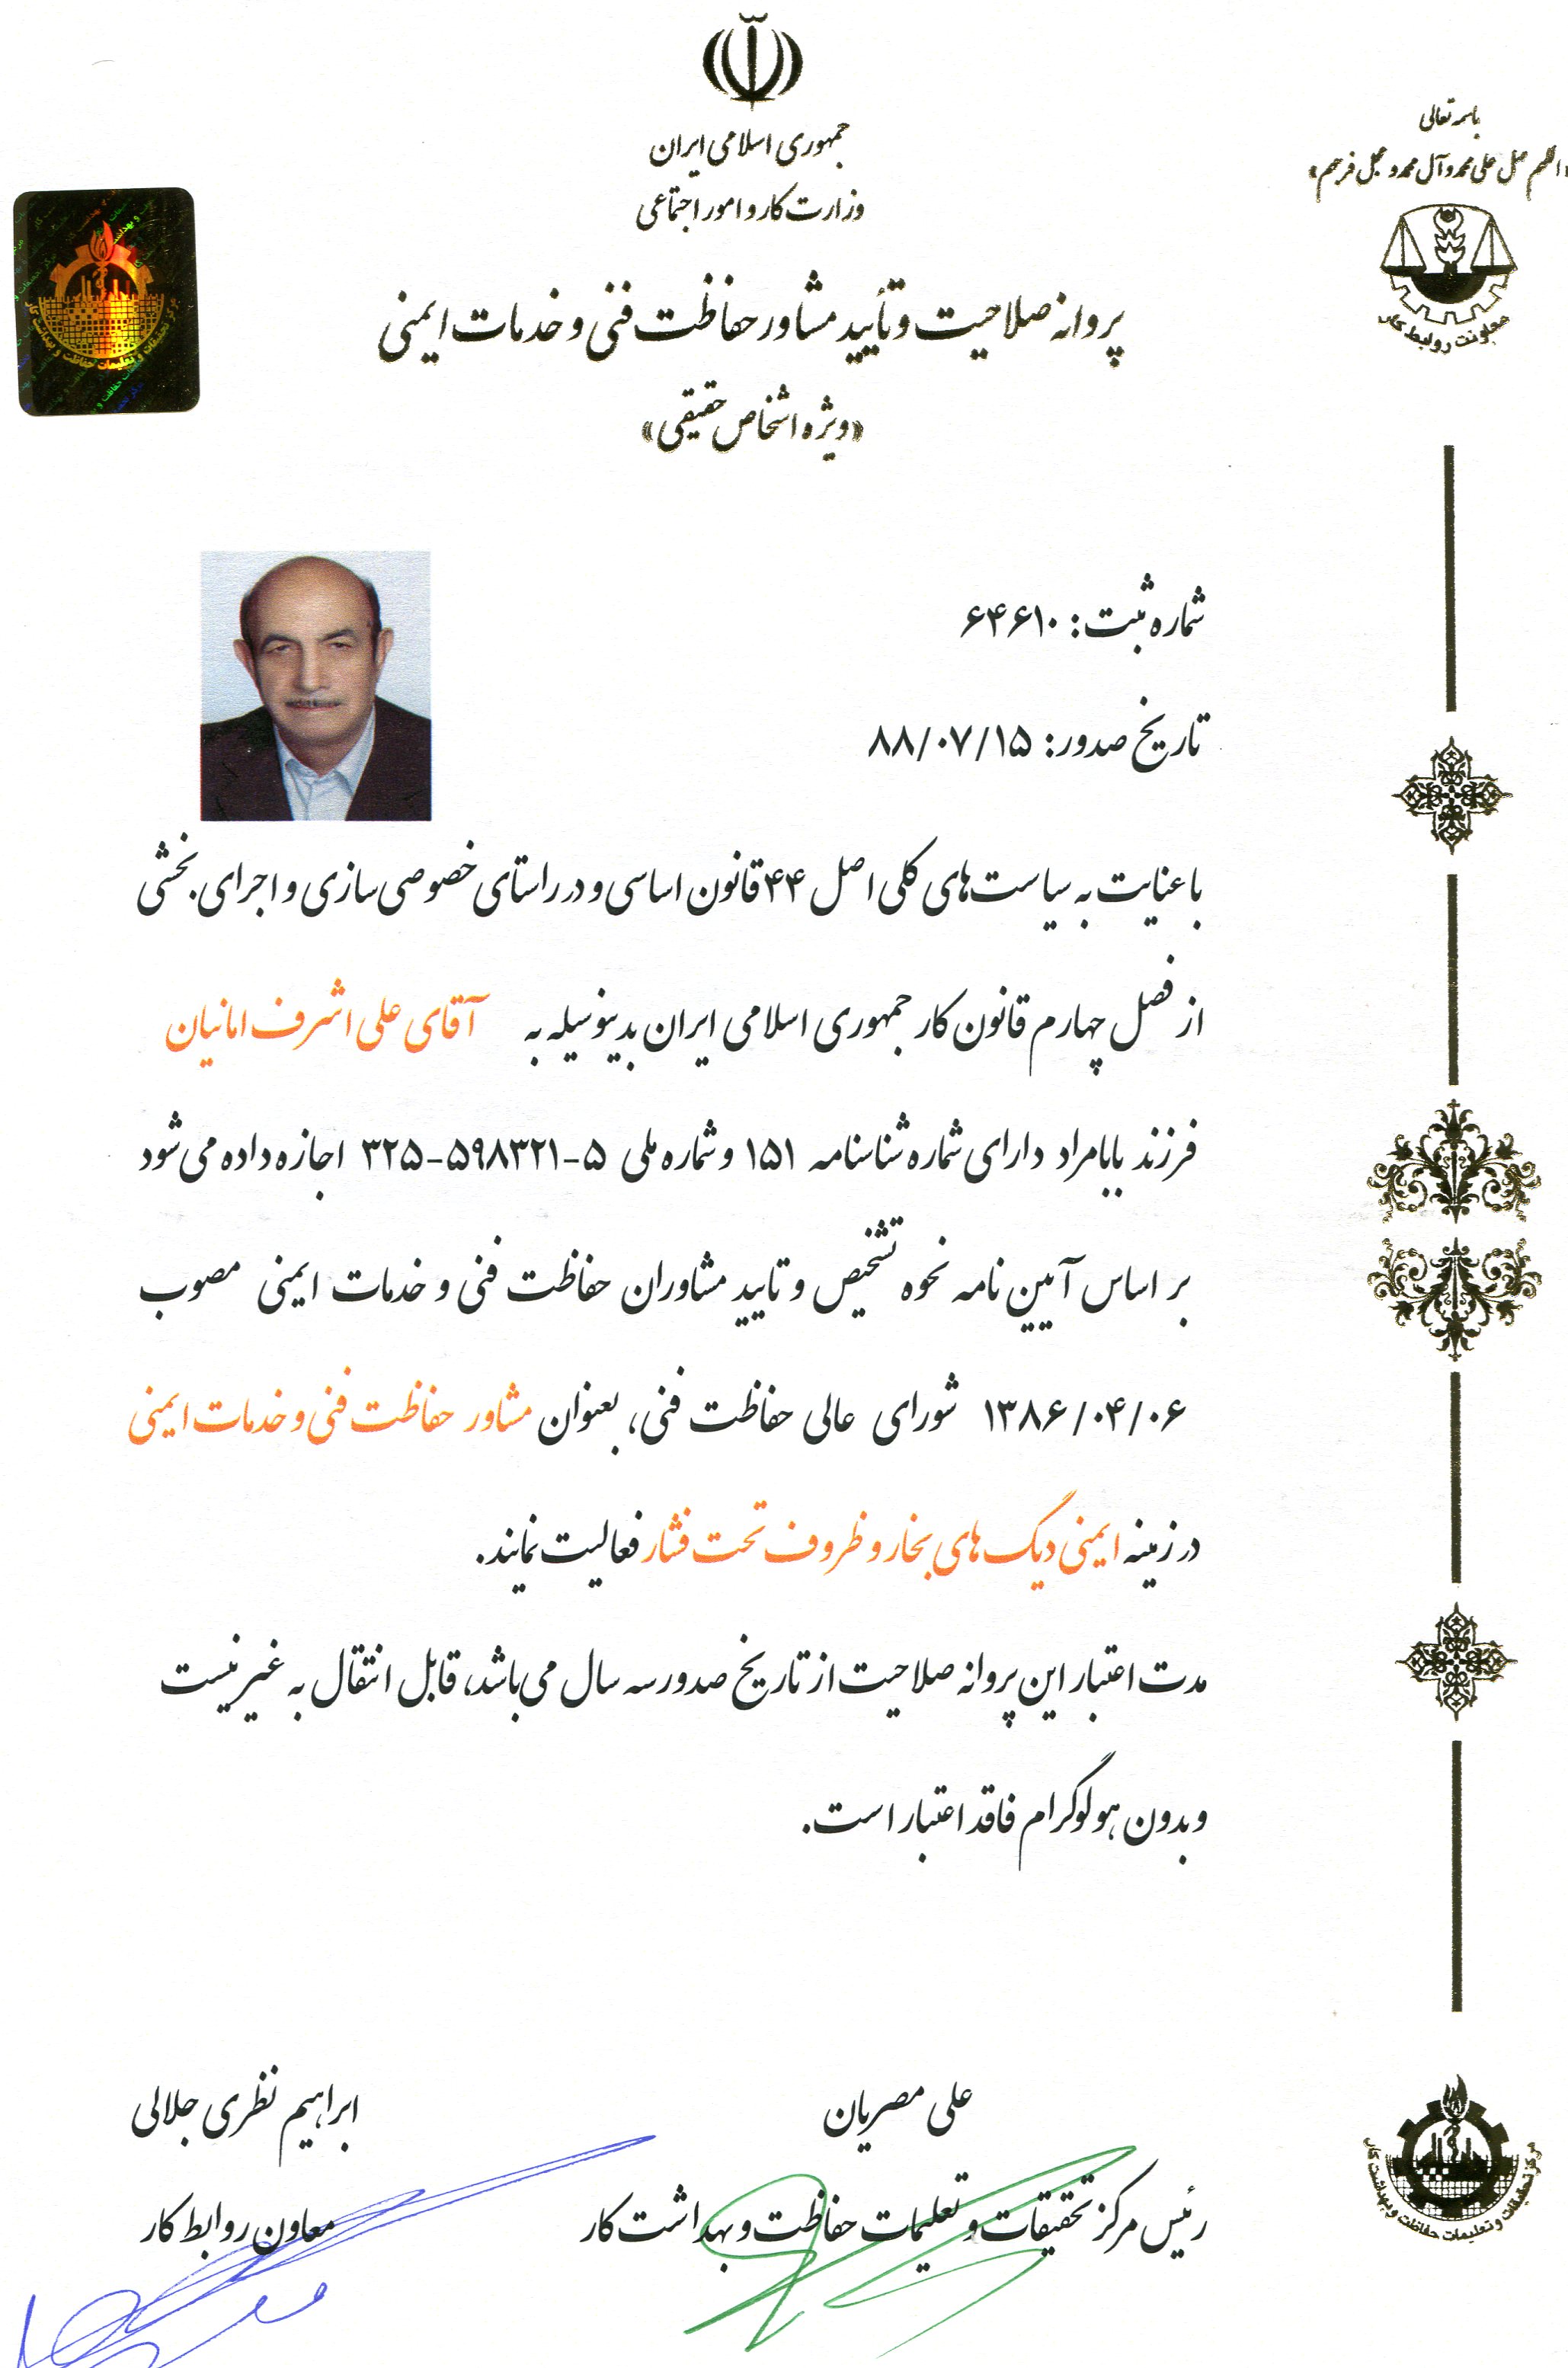 جمهوری اسلامی ایران
وزارت کار و امور اجتماعی
باسمه تعالی
«اللهم صل علی محمد و آل محمد و عجل فرجهم»
معاونت روابط کار
مرکز تحقیقات و تعلیمات حفاظت و بهداشت کار
پروانه صلاحیت و تأیید مشاور حفاظت فنی و خدمات ایمنی
«ویژه اشخاص حقیقی»
شماره ثبت: ۶۴۶۱۰
تاریخ صدور: ۸۸/۰۷/۱۵
با عنایت به سیاست‌های کلی اصل ۴۴ قانون اساسی و در راستای خصوصی سازی و اجرای بخشی
از فصل چهارم قانون کار جمهوری اسلامی ایران بدینوسیله به آقای علی اشرف امانیان
فرزند بابامراد دارای شماره شناسنامه ۱۵۱ و شماره ملی ۵-۵۹۸۳۲۱-۳۲۵ اجازه داده می‌شود
بر اساس آیین نامه نحوه تشخیص و تایید مشاوران حفاظت فنی و خدمات ایمنی مصوب
۱۳۸۶/۰۴/۰۶ شورای عالی حفاظت فنی، بعنوان مشاور حفاظت فنی و خدمات ایمنی
در زمینه ایمنی دیگ های بخار و ظروف تحت فشار فعالیت نمایند.
مدت اعتبار این پروانه صلاحیت از تاریخ صدور سه سال می‌باشد، قابل انتقال به غیر نیست
و بدون هولوگرام فاقد اعتبار است.
علی مصریان
رئیس مرکز تحقیقات و تعلیمات حفاظت و بهداشت کار
ابراهیم نظری جلالی
معاون روابط کار
مرکز تحقیقات و تعلیمات حفاظت و بهداشت کار